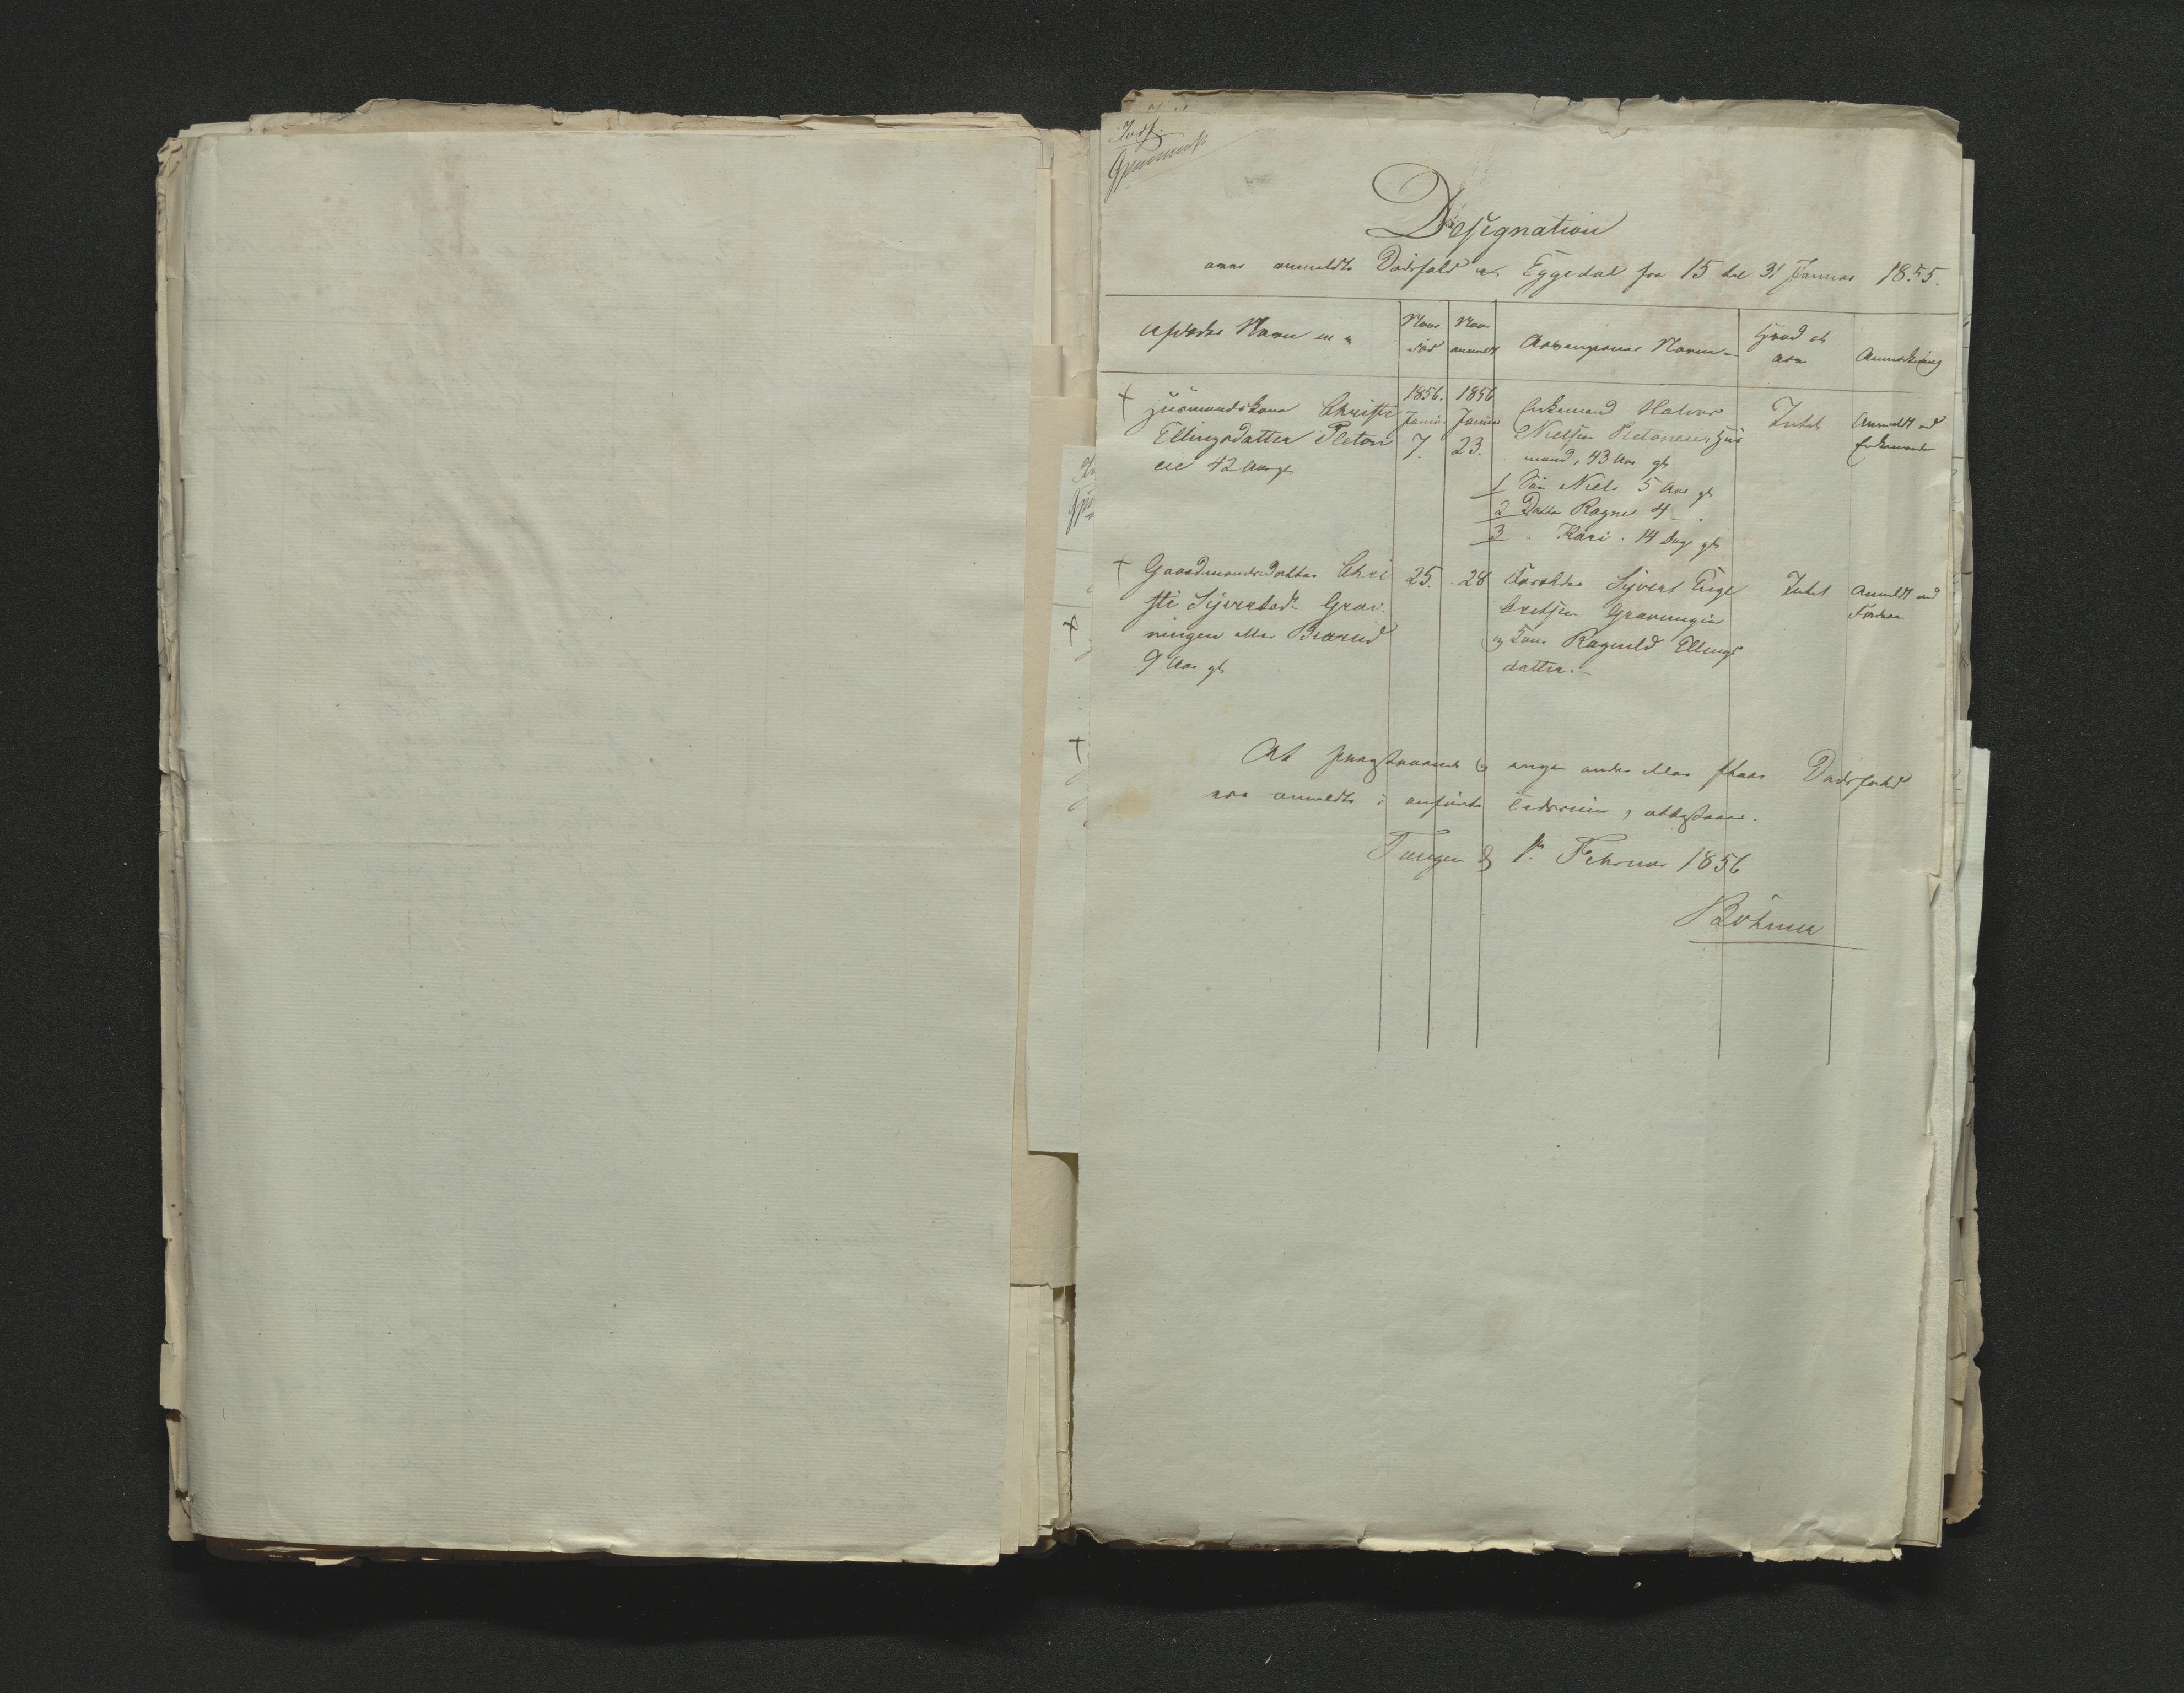 Designation
over anmeldte Dødsfald i Eggedal fra 15 til 31 Januar 1855.
Afdødes Navn m m
Naar død
Naar anmeldt
Arvingernes Navne
Hvad at arve
Anmærkning
+ Huusmandskone Christi
Ellingsdatter Pleton
eie 42 Aar gl
1856.
Januar
7.
1856
Januar
23.
Enkemand Halvor
Nielsen Pletoneie, Huus
mand, 43 Aar gl
1 Søn Niels 5 Aar gl
2 Datter Ragne 4 -
3 Kari 14 Dage gl
Intet
Anmeldt ved
Enkemanden
+ Gaardmandsdatter Chri
sti Syversdatr Grav
ningen eller Bjørerud
9 Aar gl
25.
28
Forældre Syvert Enge
bretsen Gravningen
og Kone Ragnild Ellings
datter.-
Intet
Anmeldt ved
Faderen
At foregstaaende og ingen andre eller flere Dødsfald
ere anmeldte i anførte Tidsrum, attesteres.
Tangen d 1ste Februar 1856
Bøhmer